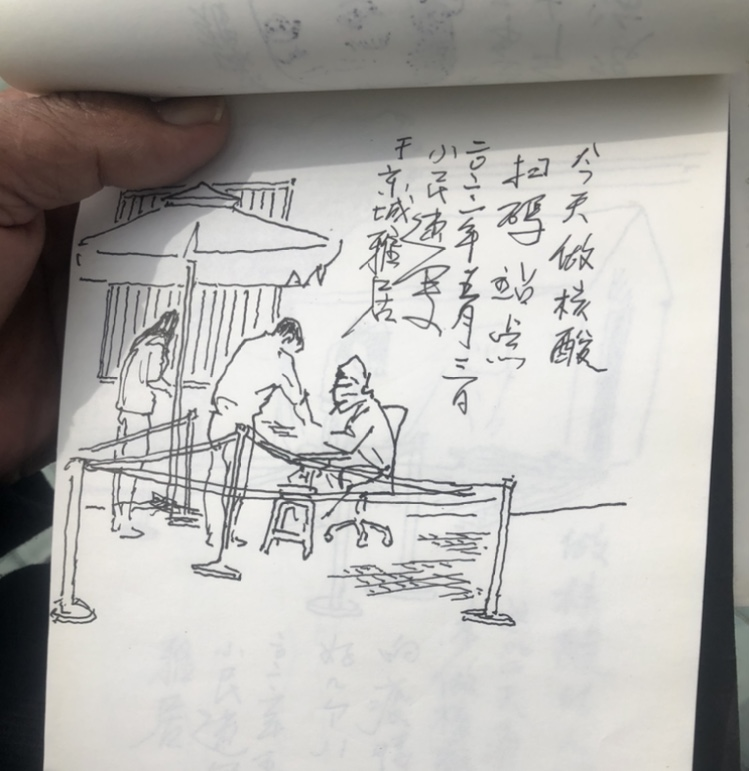 今天做核酸
扫码站点
二〇二二年五月三日
小民速写
于京城雅居